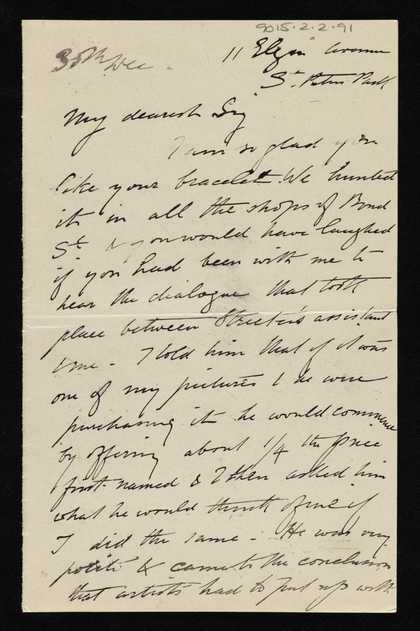 9015-2-2-91
30th Dec
11 Elgin Avenue
St Peters Park
My dearest Sig
I am so glad you
like your bracelet. We hunted
it in all the shops of Bond
St & you would have laughed
if you had been with me to
hear the dialogue that took
place between Streeter's assistant
& me - I told him that if it was
one of my pictures & he were
purchasing it he would commence
by offering about 1/4 the price
first named & I then asked him
what he would think of me if
I did the same - He was very
polite & came to the conclusion
that artists had to put up with